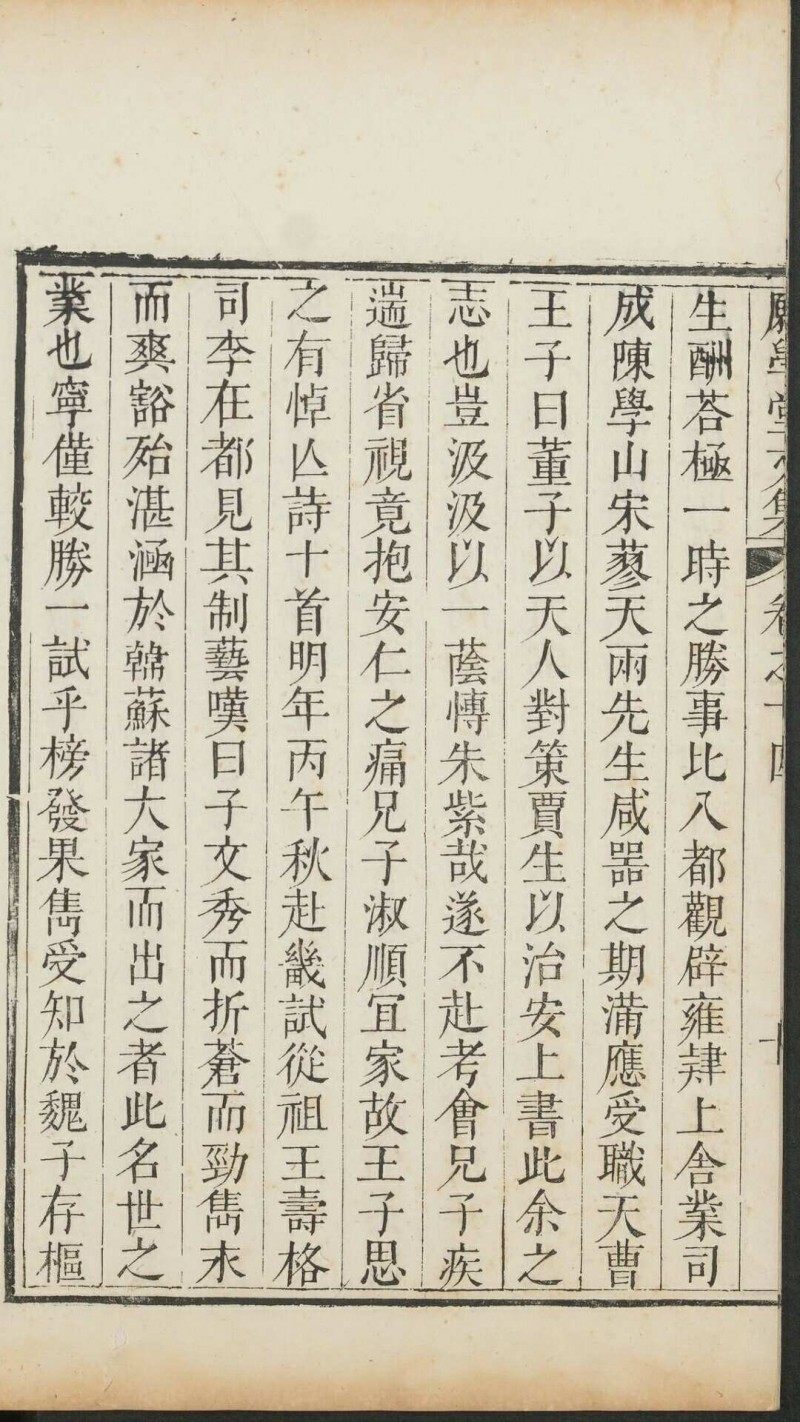 願學堂文集 卷之十四 十
生酬荅極一時之勝事比入都觀辟雍肄上舍業司
成陳學山宋蓼天兩先生咸噐之期滿應受職天曹
王子曰董子以天人對策賈生以治安上書此余之
志也豈汲汲以一蔭慱朱紫哉遂不赴考會兄子疾
遄歸省視竟抱安仁之痛兄子淑順宜家故王子思
之有悼亾詩十首明年丙午秋赴畿試從祖王壽格
司李在都見其制藝嘆曰子文秀而折蒼而勁雋永
而爽豁殆湛涵於韓蘇諸大家而出之者此名世之
業也寧僅較勝一試乎榜發果雋受知於魏子存樞